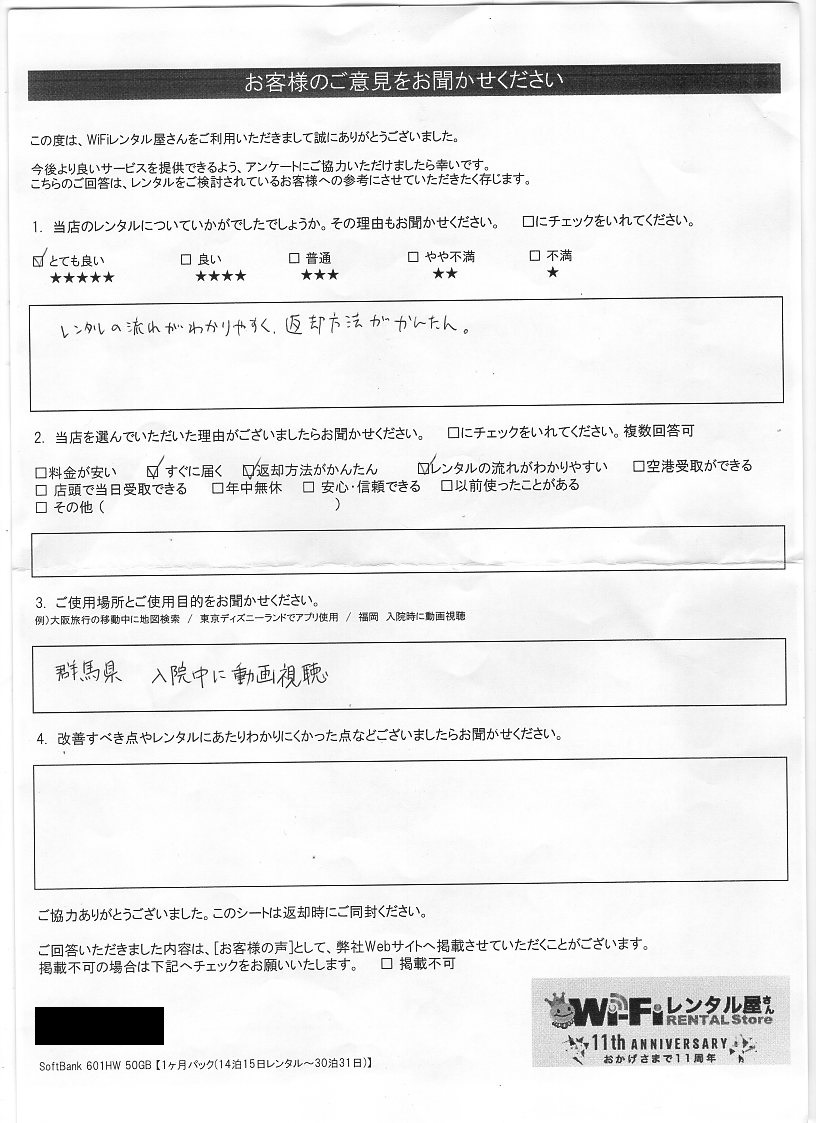 お客様のご意見をお聞かせください
この度は、WiFiレンタル屋さんをご利用いただきまして誠にありがとうございました。
今後より良いサービスを提供できるよう、アンケートにご協力いただけましたら幸いです。
こちらのご回答は、レンタルをご検討されているお客様への参考にさせていただきたく存じます。
1. 当店のレンタルについていかがでしたでしょうか。その理由もお聞かせください。 □にチェックをいれてください。
☑とても良い □ 良い □ 普通 □ やや不満 □ 不満
★★★★★ ★★★★ ★★★ ★★ ★
レンタルの流れがわかりやすく、返却方法がかんたん。
2. 当店を選んでいただいた理由がございましたらお聞かせください。 □にチェックをいれてください。複数回答可
□料金が安い ☑すぐに届く ☑返却方法がかんたん ☑レンタルの流れがわかりやすい □空港受取ができる
□ 店頭で当日受取できる □年中無休 □ 安心・信頼できる □以前使ったことがある
□ その他 ( )
3. ご使用場所とご使用目的をお聞かせください。
例)大阪旅行の移動中に地図検索 / 東京ディズニーランドでアプリ使用 / 福岡 入院時に動画視聴
群馬県 入院中に動画視聴
4. 改善すべき点やレンタルにあたりわかりにくかった点などございましたらお聞かせください。
ご協力ありがとうございました。このシートは返却時にご同封ください。
ご回答いただきました内容は、[お客様の声]として、弊社Webサイトへ掲載させていただくことがございます。
掲載不可の場合は下記へチェックをお願いいたします。 □ 掲載不可
Wi-Fiレンタル屋さん
RENTAL Store
11th ANNIVERSARY
おかげさまで11周年
SoftBank 601HW 50GB【1ヶ月パック(14泊15日レンタル～30泊31日)】